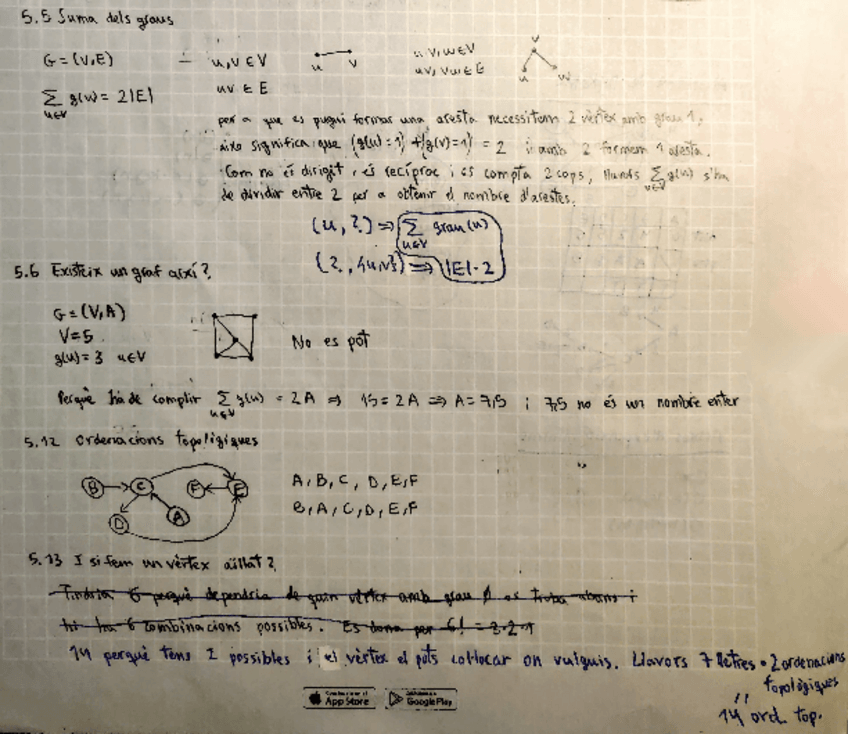 5.5 Suma dels graus
G = (V,E) — u,v ∈ V u v u,v,w ∈ V v
uv ∈ E uv, vw ∈ E u w
∑ g(u) = 2|E|
u∈V
per a que es pugui formar una aresta necessitem 2 vèrtex amb grau 1,
aixo significa que (g(u)=1) + (g(v)=1) = 2 i amb 2 formem 1 aresta.
Com no és dirigit, és recíproc i es compta 2 cops, llavors ∑ g(u) s'ha
u∈V
de dividir entre 2 per a obtenir el nombre d'arestes.
(u, ?) ⇒ ∑ grau(u)
u∈V
(?, {u,v}) ⇒ |E|·2
5.6 Existeix un graf així?
G = (V,A)
V=5
g(u)=3 u∈V
No es pot
Perquè ha de complir ∑ g(u) = 2A ⇒ 15 = 2A ⇒ A = 7,5 i 7,5 no és un nombre enter
u∈V
5.12 Ordenacions topològiques
B C F E
D A
A, B, C, D, E, F
B, A, C, D, E, F
5.13 I si fem un vèrtex aïllat?
Tindria 6 perquè dependria de quin vèrtex amb grau 0 es troba abans i
hi ha 6 combinacions possibles. Es dona per 6! = 3·2·1
14 perquè tens 2 possibles i el vèrtex el pots col·locar on vulguis. Llavors 7 lletres · 2 ordenacions
topològiques
"
14 ord. top.
App Store
Google Play